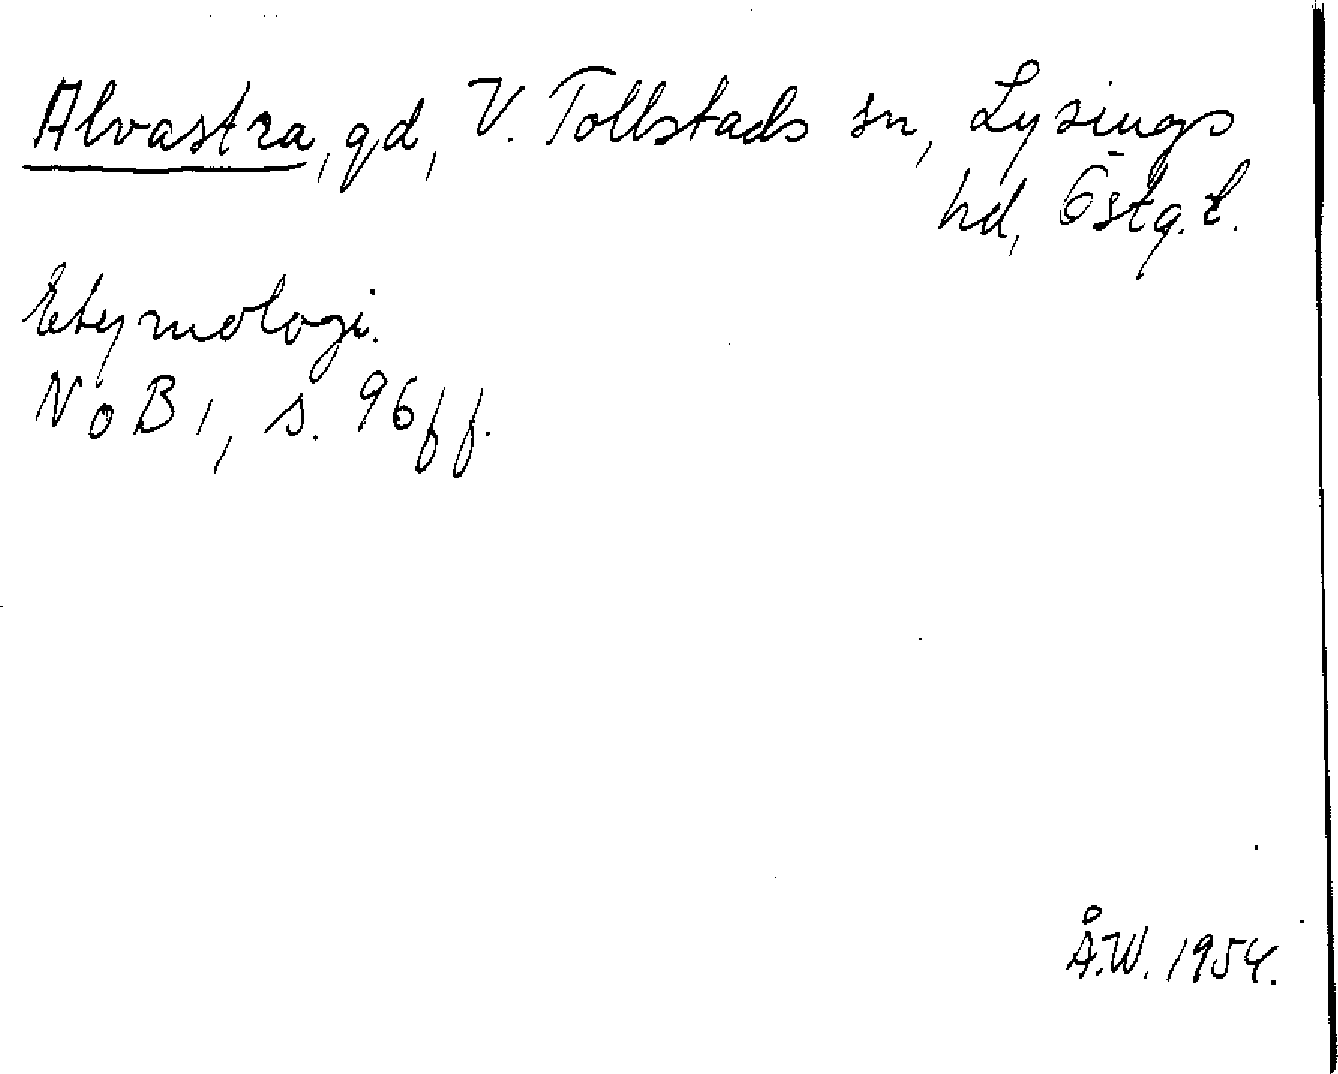 Alvastra, gd, V. Tollstads sn, Lysings
hd, Östg.l.
Etymologi.
NoB 1, s. 96 ff.
Å.W. 1954.